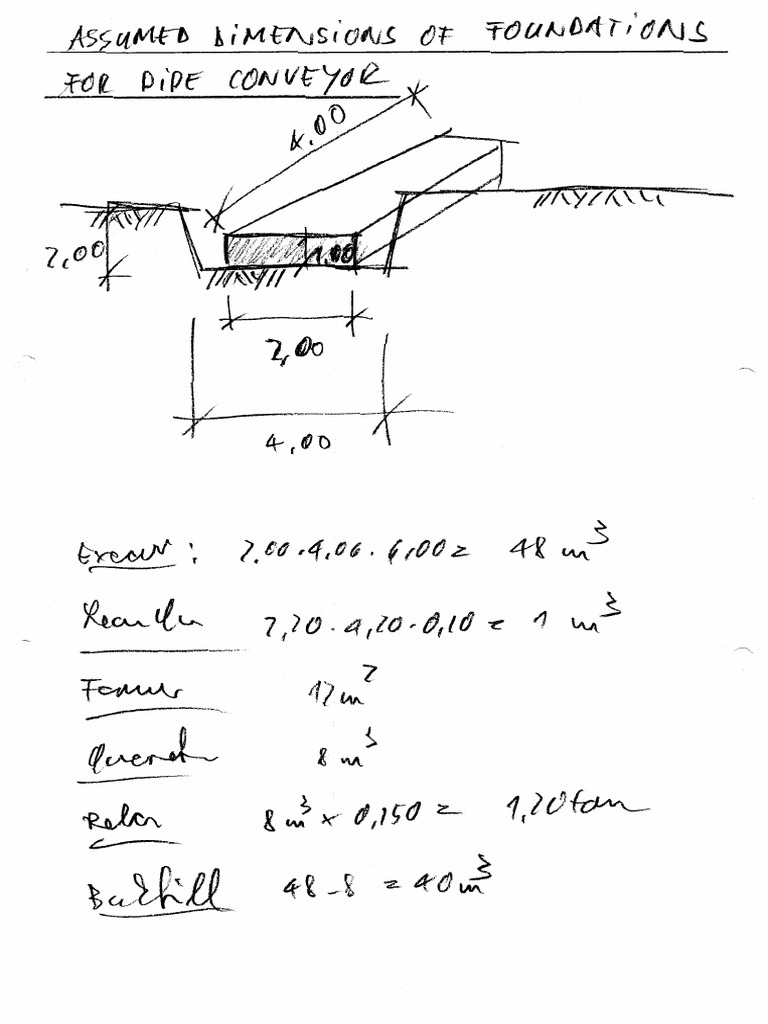 ASSUMED DIMENSIONS OF FOUNDATIONS
FOR PIPE CONVEYOR
4.00
2,00
1,00
2,00
4,00
Excav: 2.00.4,00.6,00= 48 m³
2,20.4,20.0,10= 1 m³
12m²
8 m³
Rebar 8m³ x 0,150 = 1,20 ton
Backfill 48-8 = 40m³